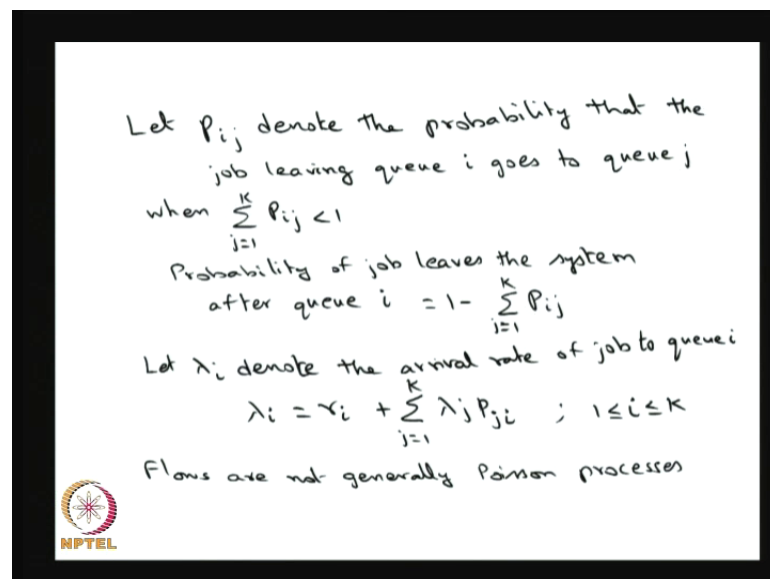 Let Pij denote the probability that the
job leaving queue i goes to queue j
when \sum_{j=1}^{K} Pij < 1
Probability of job leaves the system
after queue i = 1 - \sum_{j=1}^{K} Pij
Let λi denote the arrival rate of job to queue i
λi = ri + \sum_{j=1}^{K} λj Pji ; 1 ≤ i ≤ K
Flows are not generally Poisson processes
NPTEL